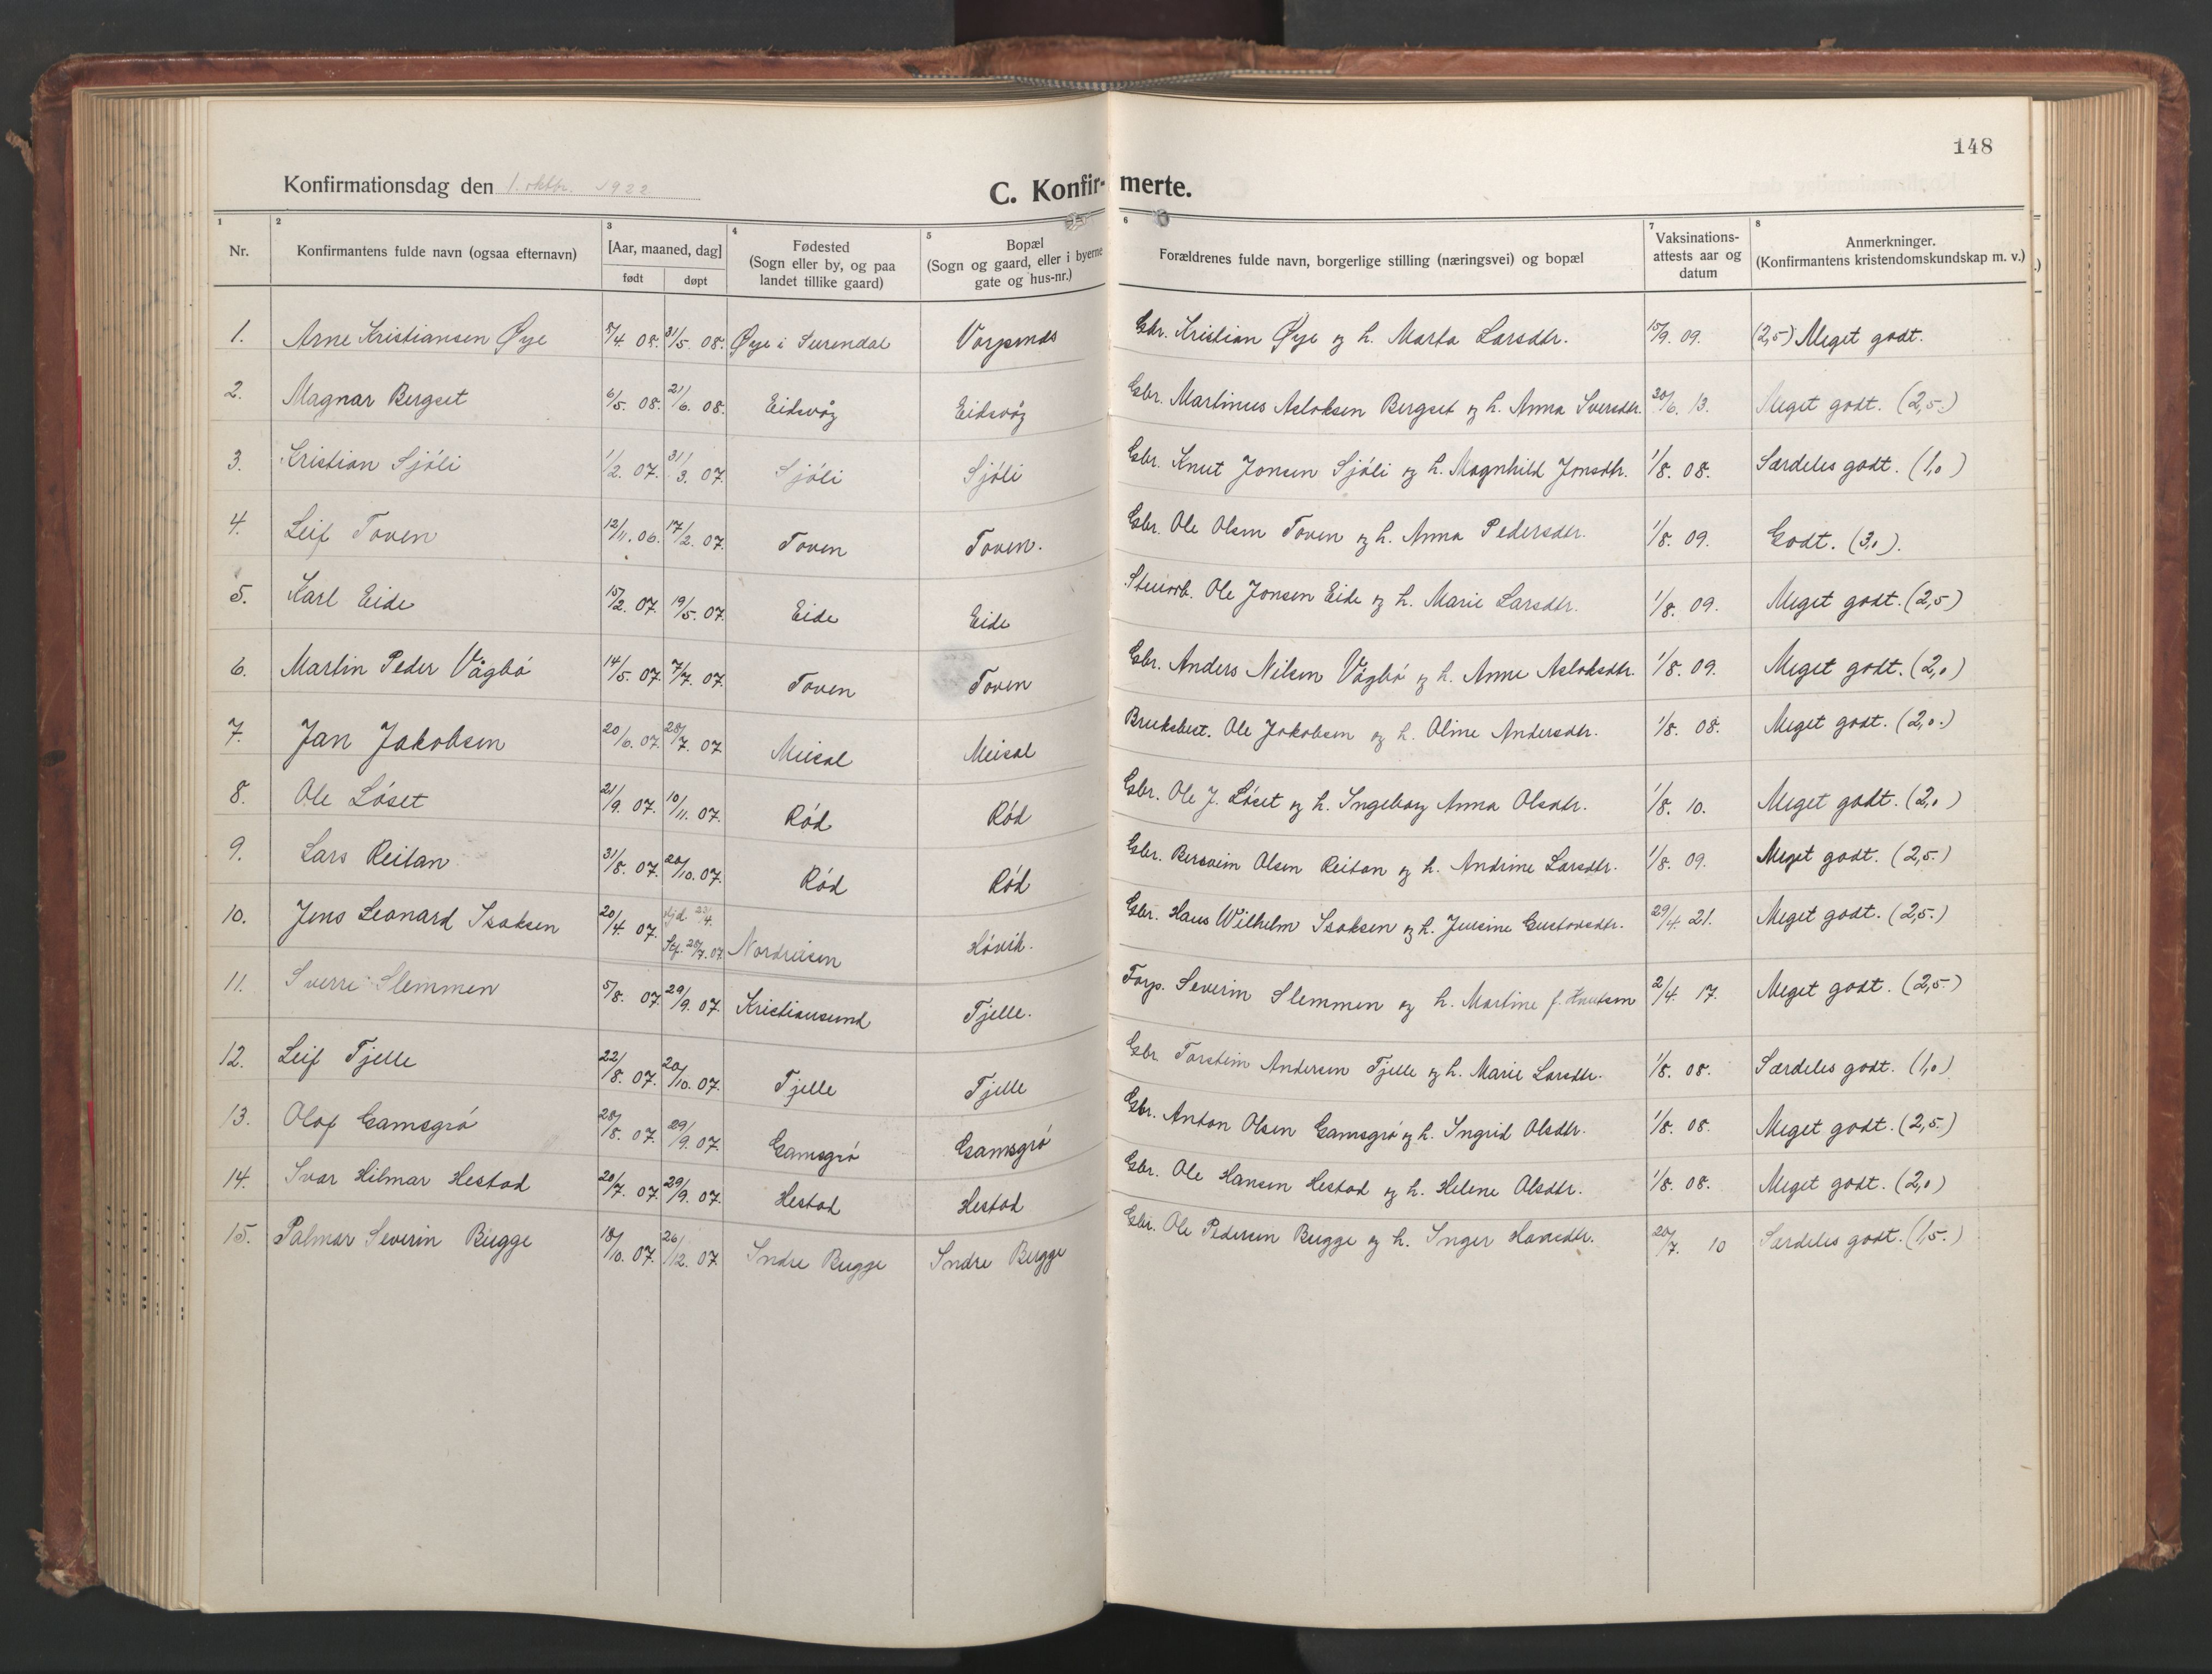 148
Konfirmationsdag den 1. oktbr. 1922
C. Konfirmerte.
1 2 3 4 5 6 7 8
Nr. | Konfirmantens fulde navn (ogsaa efternavn) | [Aar, maaned, dag] født døpt | Fødested (Sogn eller by, og paa landet tillike gaard) | Bopæl (Sogn og gaard, eller i byerne gate og hus-nr.) | Forældrenes fulde navn, borgerlige stilling (næringsvei) og bopæl | Vaksinations-attests aar og datum | Anmerkninger. (Konfirmantens kristendomskundskap m. v.)
1. Arne Kristiansen Øye 5/4 08. 31/5 08. Øye i Surendal Vorpenes Gbr. Kristian Øye og h. Marta Larsdtr. 15/9. 09. (2,5) Meget godt.
2. Magnar Bergset 6/5. 08. 21/6. 08. Eidsvåg Eidsvåg Gbr. Martinus Aslaksen Bergset og h. Anna Iversdtr. 30/6. 13. Meget godt. (2,5.)
3. Kristian Sjøli 1/2. 07. 31/3. 07. Sjøli Sjøli Gbr. Knut Jonsen Sjøli og h. Magnhild Jonsdtr. 1/8. 08. Særdeles godt. (1,0)
4. Leif Toven 12/11. 06. 17/2. 07. Toven Toven. Gbr. Ole Olsen Toven og h. Anna Pedersdtr. 1/8. 09. Godt. (3,0).
5. Karl Eide 15/2. 07. 19/5. 07. Eide Eide Stenarb. Ole Jonsen Eide og h. Marie Larsdtr. 1/8. 09. Meget godt. (2,5)
6. Martin Peder Vågbø 14/5. 07. 7/7. 07. Toven Toven Gbr. Anders Nilsen Vågbø og h. Anne Aslaksdtr. 1/8. 09. Meget godt. (2,0)
7. Jan Jakobsen 20/6. 07. 28/7. 07 Meisal Meisal Bruksbest. Ole Jakobsen og h. Oline Andersdtr. 1/8. 08. Meget godt. (2,0.)
8. Ole Løset 21/9. 07. 10/11. 07. Rød Rød Gbr. Ole J. Løset og h. Ingeborg Anna Olsdtr. 1/8. 10. Meget godt. (2,0)
9. Lars Reitan 31/8. 07. 20/10. 07. Rød Rød Gbr. Bersvein Olsen Reitan og h. Andrine Larsdtr. 1/8. 09. Meget godt. (2,5.)
10. Jens Leonard Isaksen 20/4. 07. hjd 22/4. Stf. 28/7. 07. Høvik. Gbr. Hans Wilhelm Isaksen og h. Jensine Gustavsdtr. 29/4. 21. Meget godt. (2,5.)
11. Sverre Slemmen 5/8. 07. 29/9. 07. Kristiansund Tjelle. Forp. Severin Slemmen og h. Martine f. Knutsen 2/4. 17. Meget godt. (2,5.)
12. Leif Tjelle 22/8. 07. 20/10. 07. Tjelle Tjelle Gbr. Torstein Andersen Tjelle og h. Marie Larsdtr. 1/8. 08. Særdeles godt. (1,0)
13. Olaf Gamsgrø 28/8. 07. 29/9. 07. Gamsgrø Gamsgrø Gbr. Anton Olsen Gamsgrø og h. Ingrid Olsdtr. 1/8. 08. Meget godt. (2,5.)
14. Ivar Hilmar Hestad 20/7. 07. 29/9. 07. Hestad Hestad Gbr. Ole Hansen Hestad og h. Helene Olsdtr. 1/8. 08. Meget godt. (2,0)
15. Palmar Severin Bugge 18/10. 07. 26/12. 07. Indre Bugge Indre Bugge Gbr. Ole Pedersen Bugge og h. Inger Hansdtr. 20/7. 10 Særdeles godt. (1,5.)